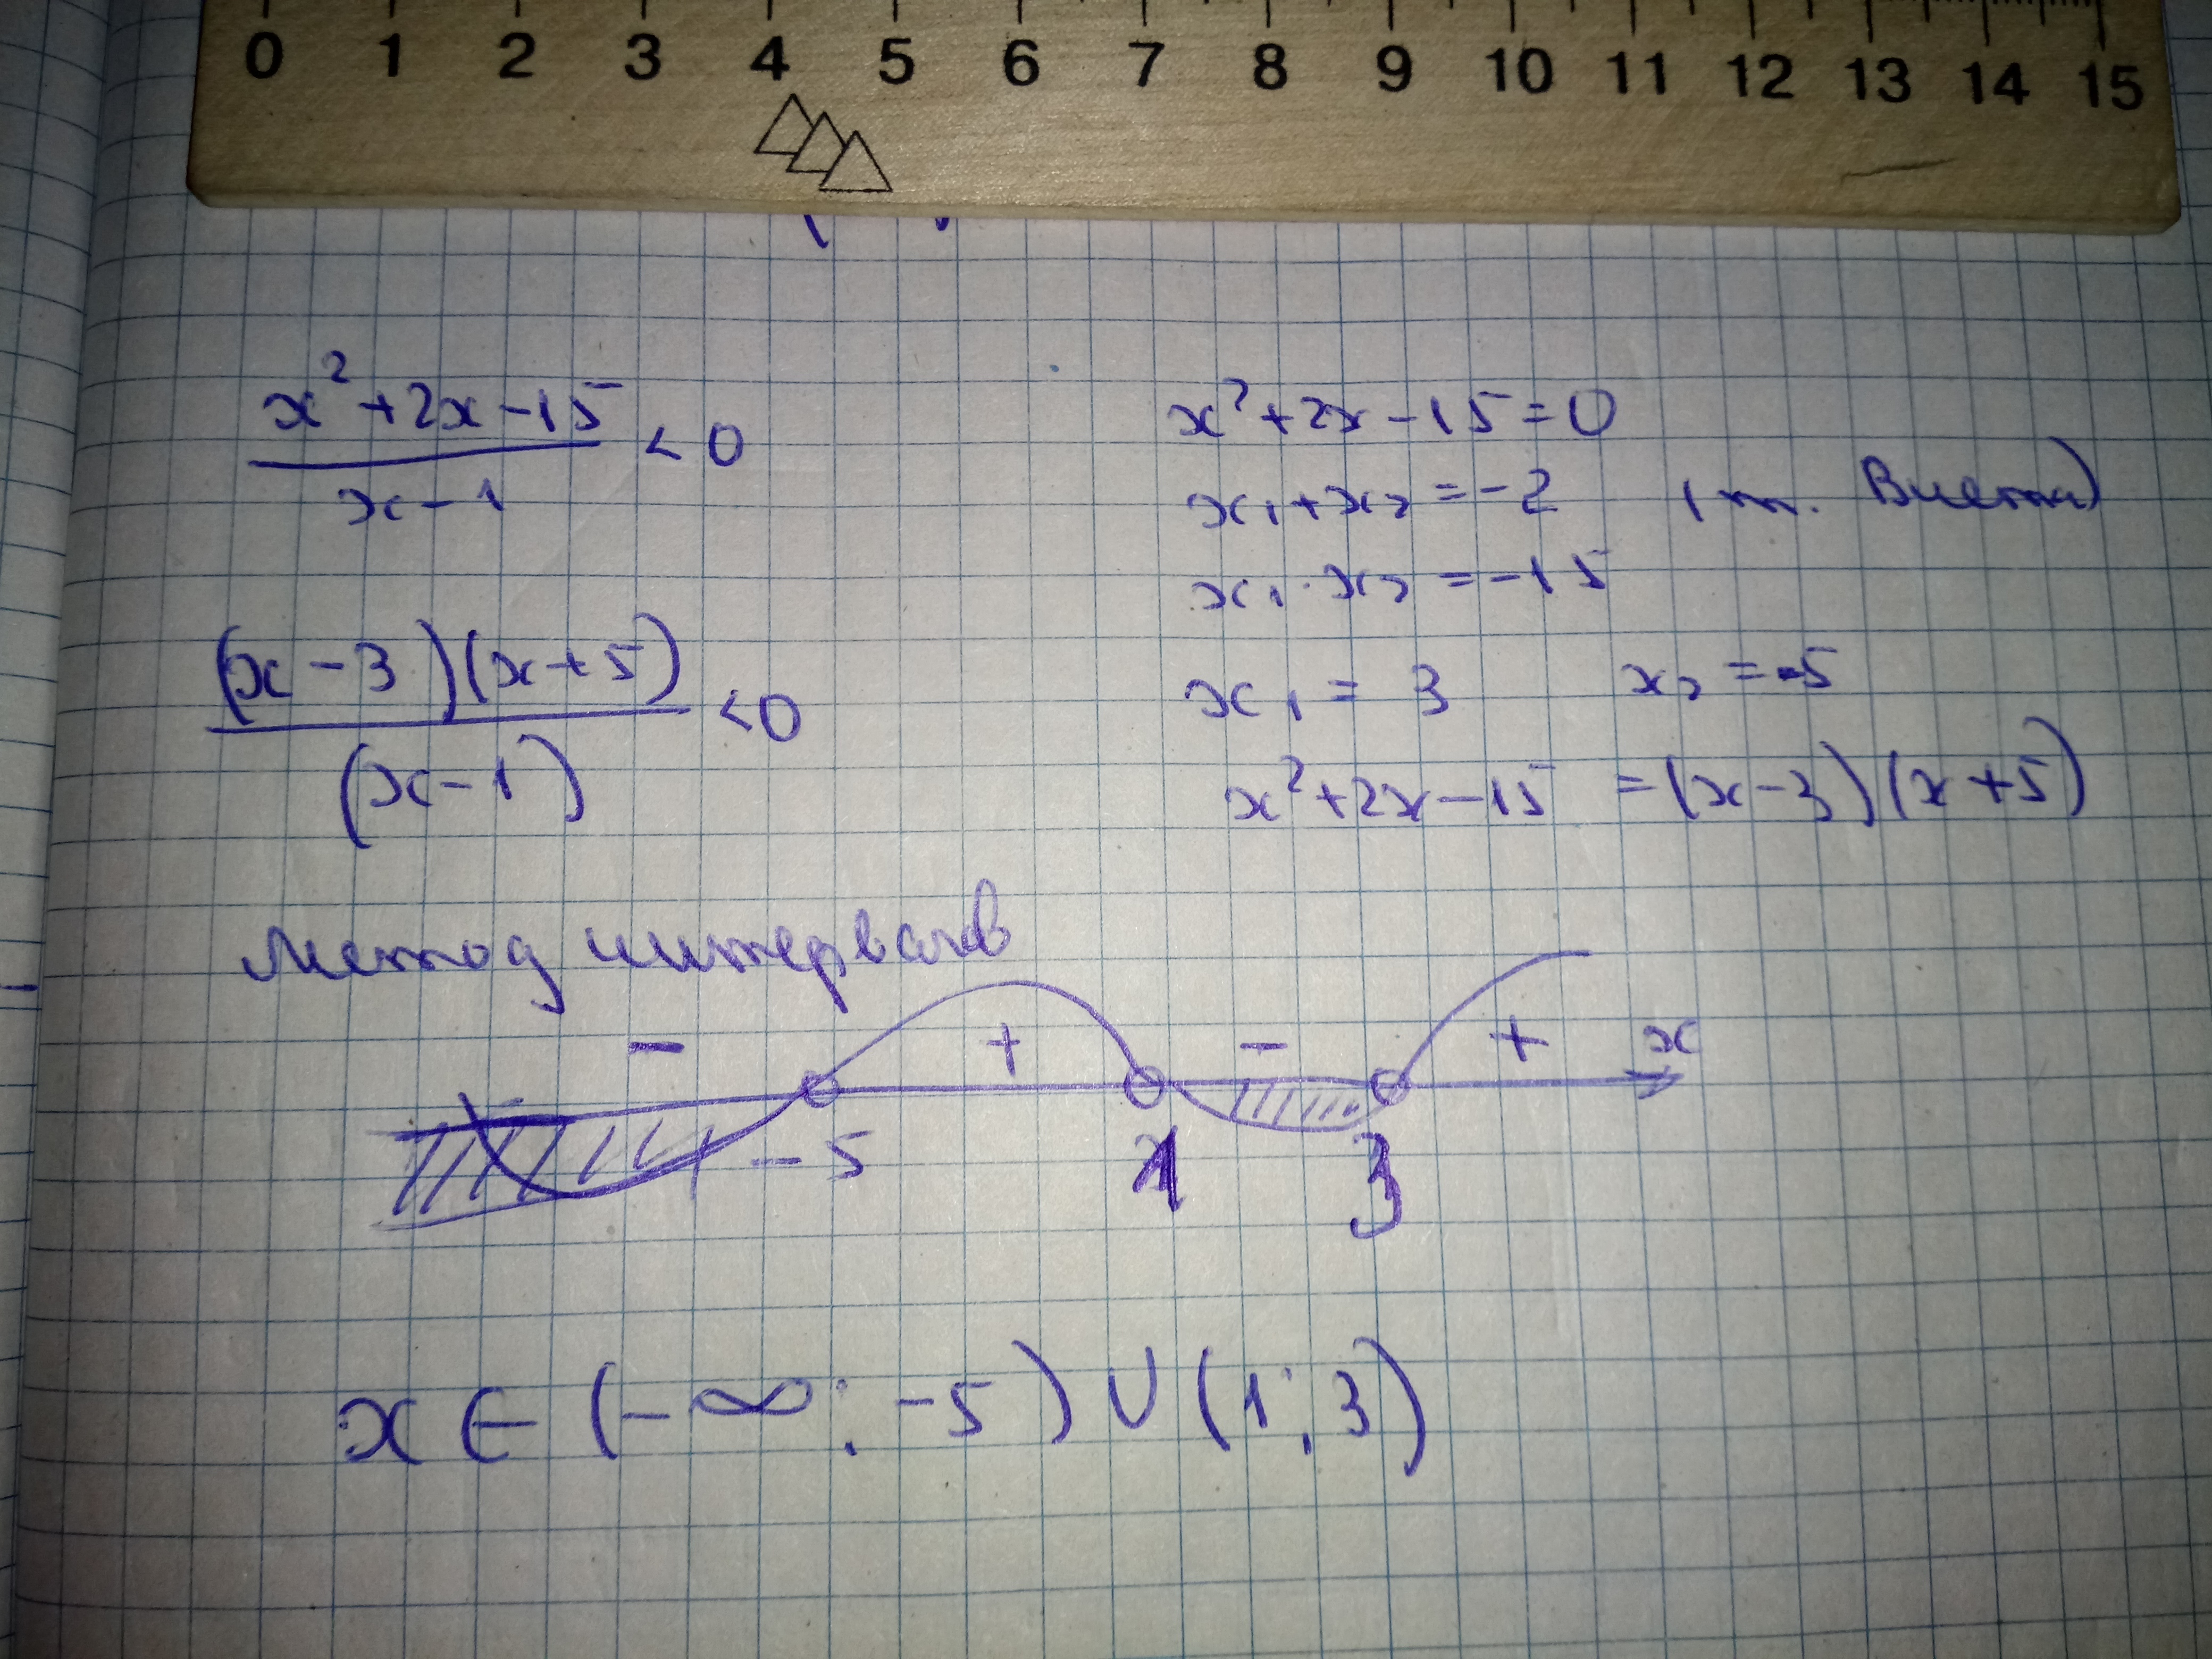 0 1 2 3 4 5 6 7 8 9 10 11 12 13 14 15
x²+2x-15
x-1
<0
x²+2x-15=0
x₁+x₂=-2 (т. Виета)
x₁·x₂=-15
(x-3)(x+5)
(x-1)
<0
x₁=3 x₂=-5
x²+2x-15=(x-3)(x+5)
метод интервалов
- + - + x
-5 1 3
x∈(-∞;-5)∪(1;3)